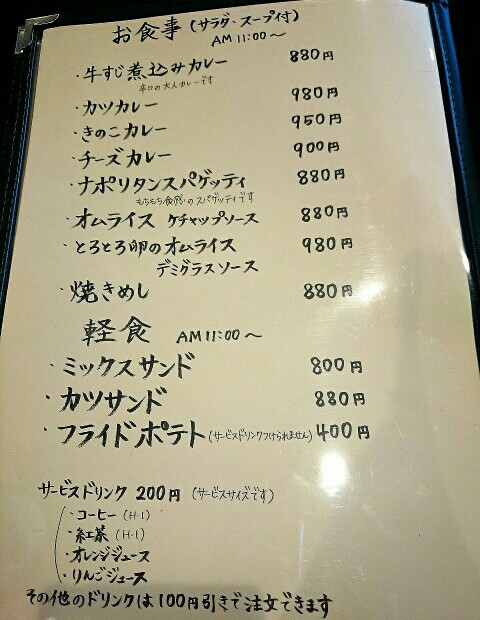 お食事 (サラダ・スープ付)
AM 11:00〜
・牛すじ煮込みカレー 880円
辛口の大人カレーです
・カツカレー 980円
・きのこカレー 950円
・チーズカレー 900円
・ナポリタンスパゲッティ 880円
もちもち食感のスパゲッティです
・オムライス ケチャップソース 880円
・とろとろ卵のオムライス 980円
デミグラスソース
・焼きめし 880円
軽食 AM 11:00〜
・ミックスサンド 800円
・カツサンド 880円
・フライドポテト (サービスドリンクつけられません) 400円
サービスドリンク 200円 (サービスサイズです)
・コーヒー (H・I)
・紅茶 (H・I)
・オレンジジュース
・りんごジュース
その他のドリンクは100円引きで注文できます